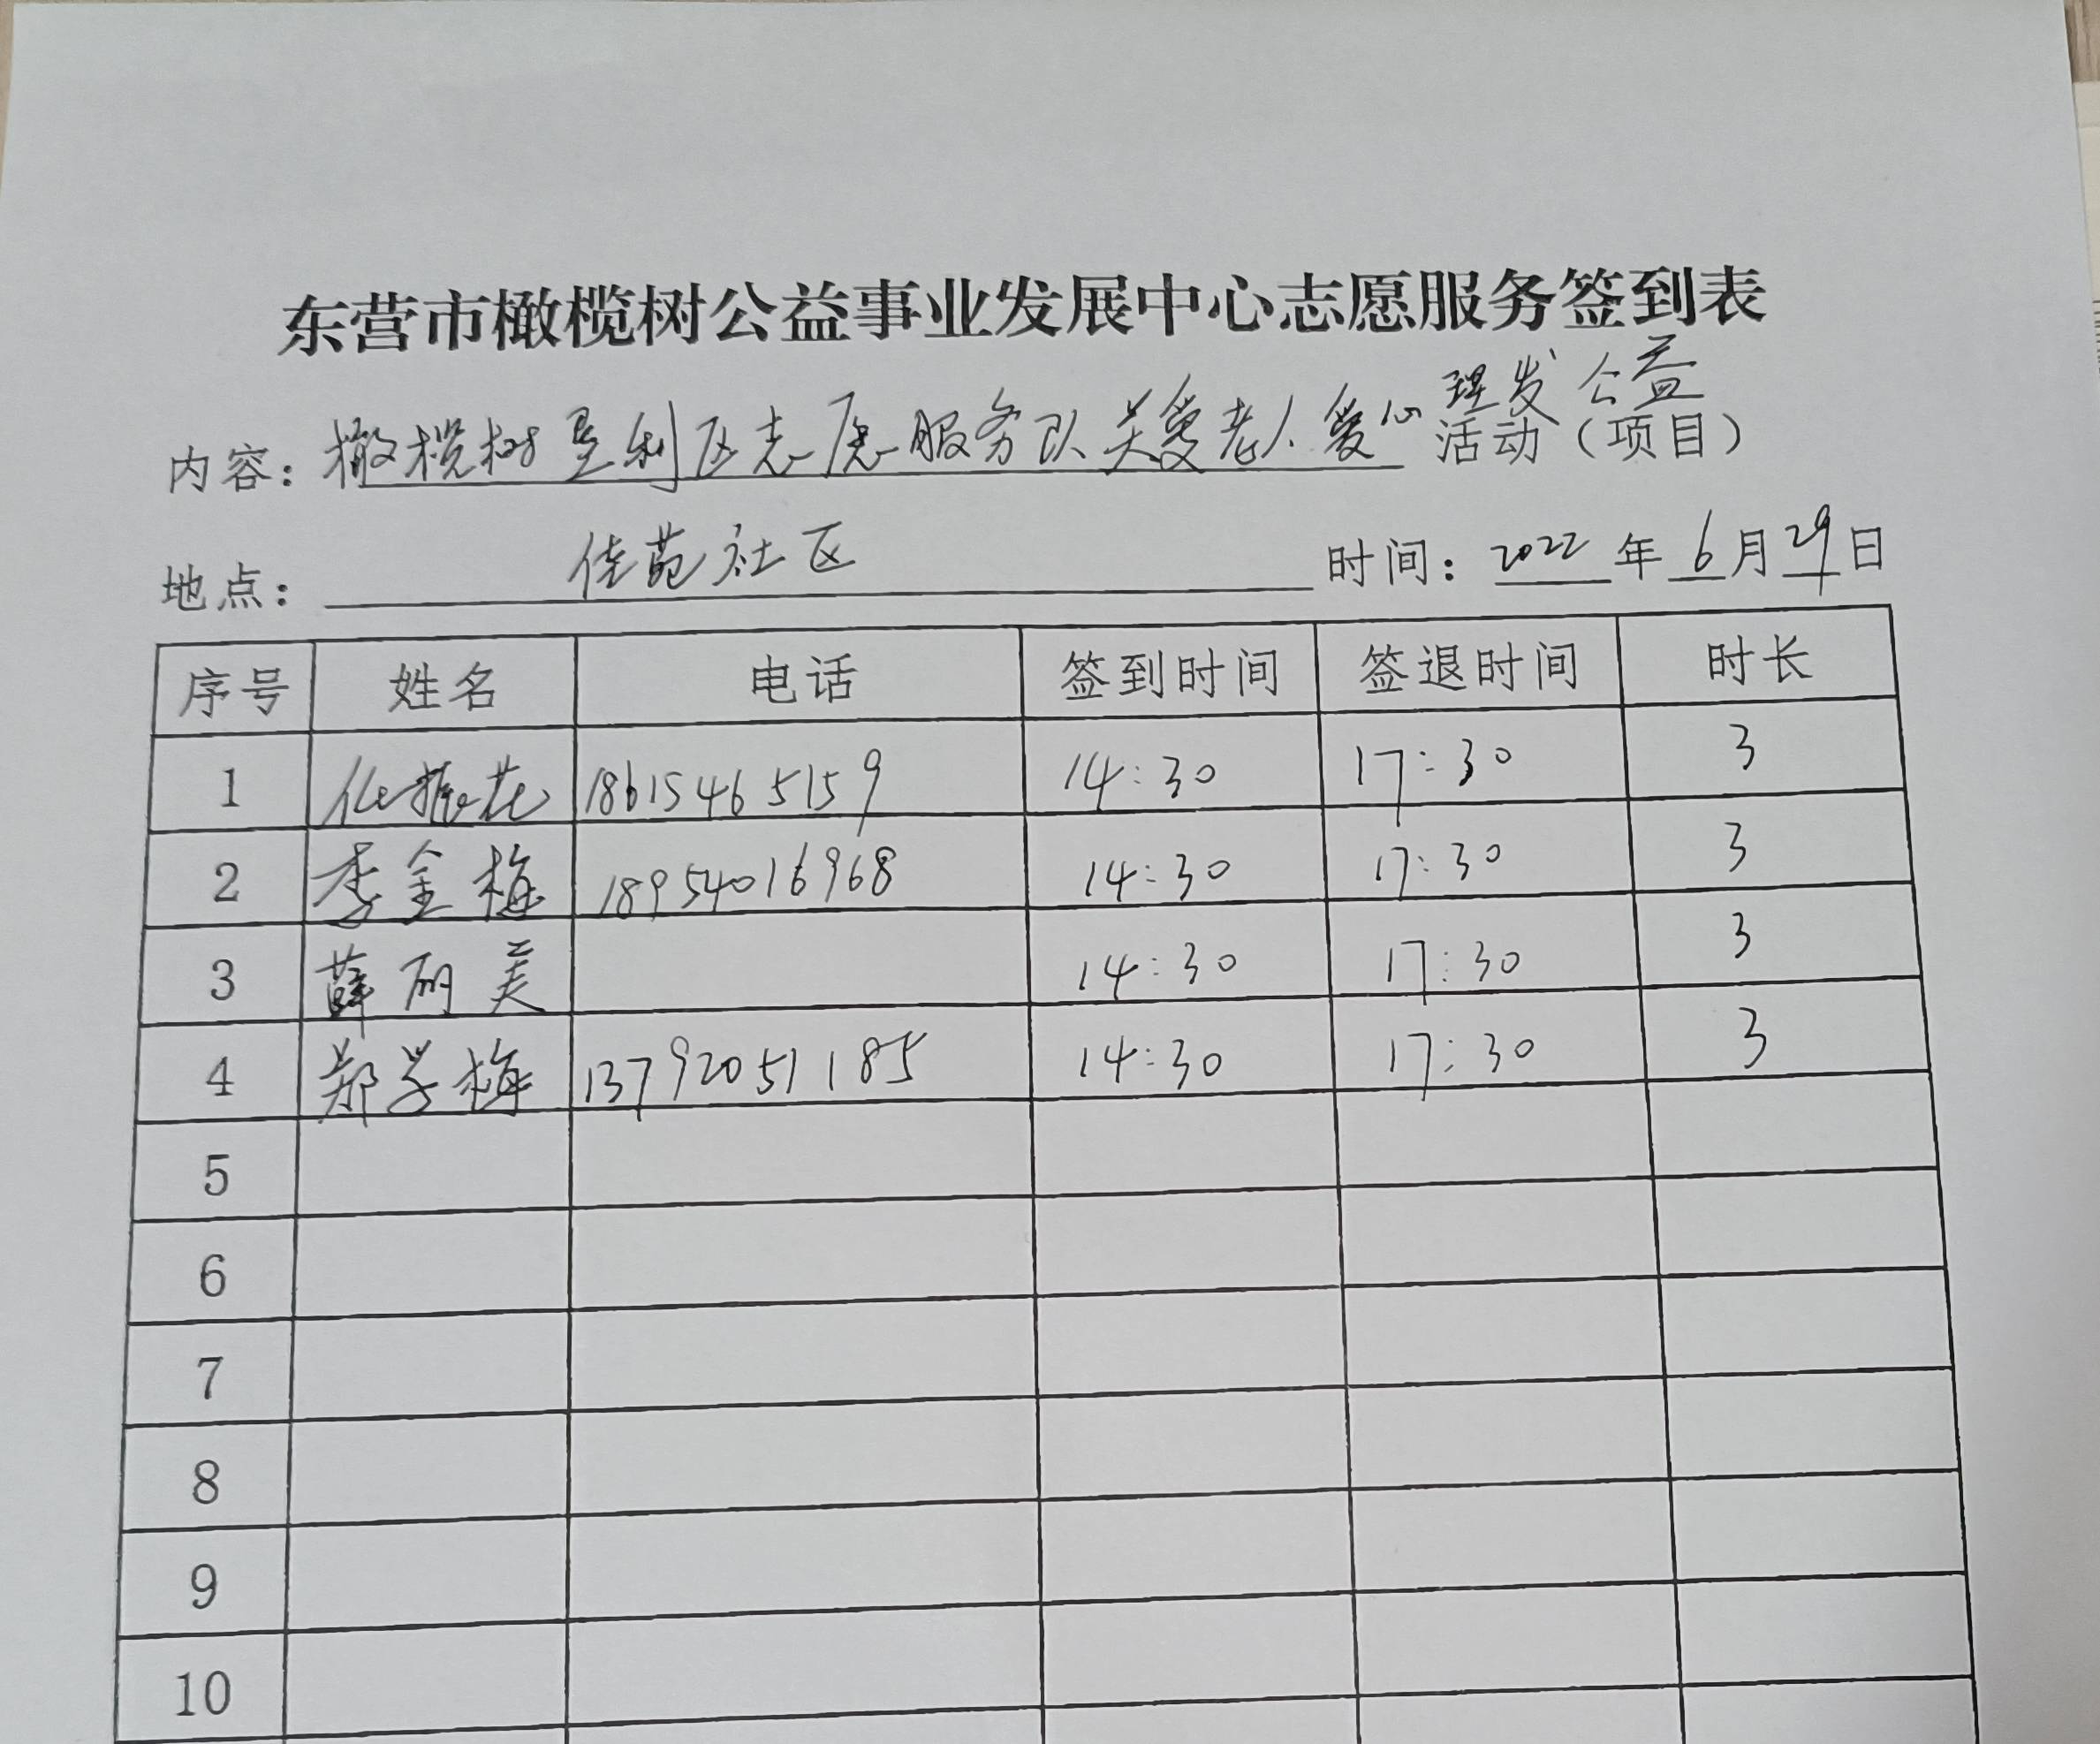 东营市橄榄树公益事业发展中心志愿服务签到表
内容：橄榄树垦利区志愿服务队关爱老人爱心理发公益活动（项目）
地点：佳苑社区 时间：2022年6月29日
序号 姓名 电话 签到时间 签退时间 时长
1 振花 18615465159 14:30 17:30 3
2 李金梅 18954016968 14:30 17:30 3
3 薛丽美 14:30 17:30 3
4 郑学梅 13792051185 14:30 17:30 3
5
6
7
8
9
10